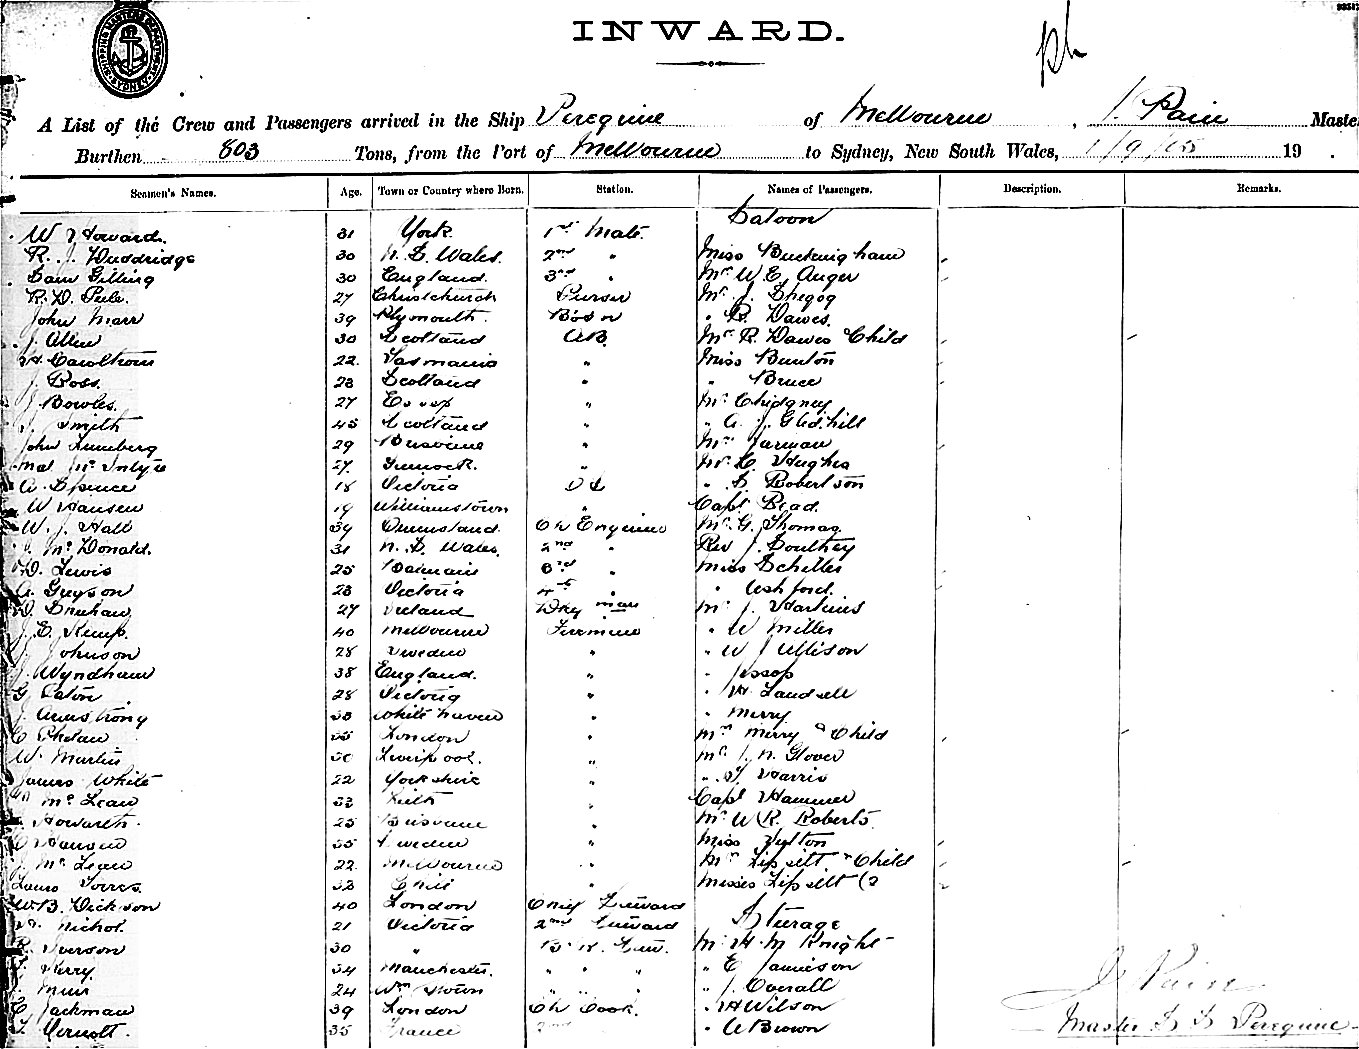 INWARD.
A List of the Crew and Passengers arrived in the Ship Peregrine of Melbourne, J. Pain Master
Burthen 803 Tons, from the Port of Melbourne to Sydney, New South Wales, 1/9/ 19 .
Seamen's Names. Age. Town or Country where Born. Station. Names of Passengers. Description. Remarks.
Saloon
W Howard. 31 York. 1st Mate.
R. J. Wooldridge 30 N. S. Wales. 2nd " Miss Buckingham
Sam Gilling 30 England. 3rd " Mr W. E. Auger
R. D. Peele. 27 Christchurch Purser Mr J. Shegog
John Marr 39 Plymouth. Bosn " R. Dawes.
J. Allen 30 Scotland AB. Mrs R. Dawes Child
22. Tasmania " Miss Bunton
J. Ross. 23 Scotland " " Bruce
J Bowles. 27 " Mr Chidgney
J. Smith 45 Scotland " " A. J. Gledhill
John Lunnberg 29 Brisbane " Mrs Jarman
27. Greenock. " Mr C Hughes
A. Spence 18 Victoria OS " S Robertson
W Hansen 19 Williamstown " Capt Read.
W. J. Hall 39 Queensland. Ch Engineer Mr G. Thomas
J. McDonald. 31 N. S. Wales. 2nd " Rev J. Southey
D. Lewis 25 Balmain 3rd " Miss Schiller
A. Greyson 23 Victoria 4th " " Ashford.
D. 27 Ireland Dky man Mr J. Harkins
J. E. Kemp. 40 Melbourne Fireman " W Miller
J. Johnson 28 Sweden " " W J Ellison
J. Wyndham 38 England. " " Jessop
G. Eaton 28 Victoria " " H. Landsell
J. Armstrong 33 White haven " " Merry
C Phelan 35 London " Mrs Merry & Child
W. Martin 30 Liverpool. " Mr J. N. Glover
James White 22 Yorkshire " " J. Harris
McLean 33 Leith " Capt Hammer
Howarth. 25 Brisbane " Mr W. R. Roberts.
C Hansen 35 Sweden " Miss
J. McLean 22. Melbourne " Mrs Lipsett & Child
Torres. 32 Chili " Misses Lipsett (2
W. B. Dickson 40 London Chief Steward
Nichol. 21 Victoria 2nd Steward Steerage
R. Iverson 30 " Mr H. M Knight
Kerry. 34 Manchester. " " " " E Jamieson
J. Muir 24 Wm Town " " " J. Overall
C Jackman 39 London Ch Cook. " H Wilson
35 France 2nd " A Brown
J. Pain
Master S. S. Peregrine